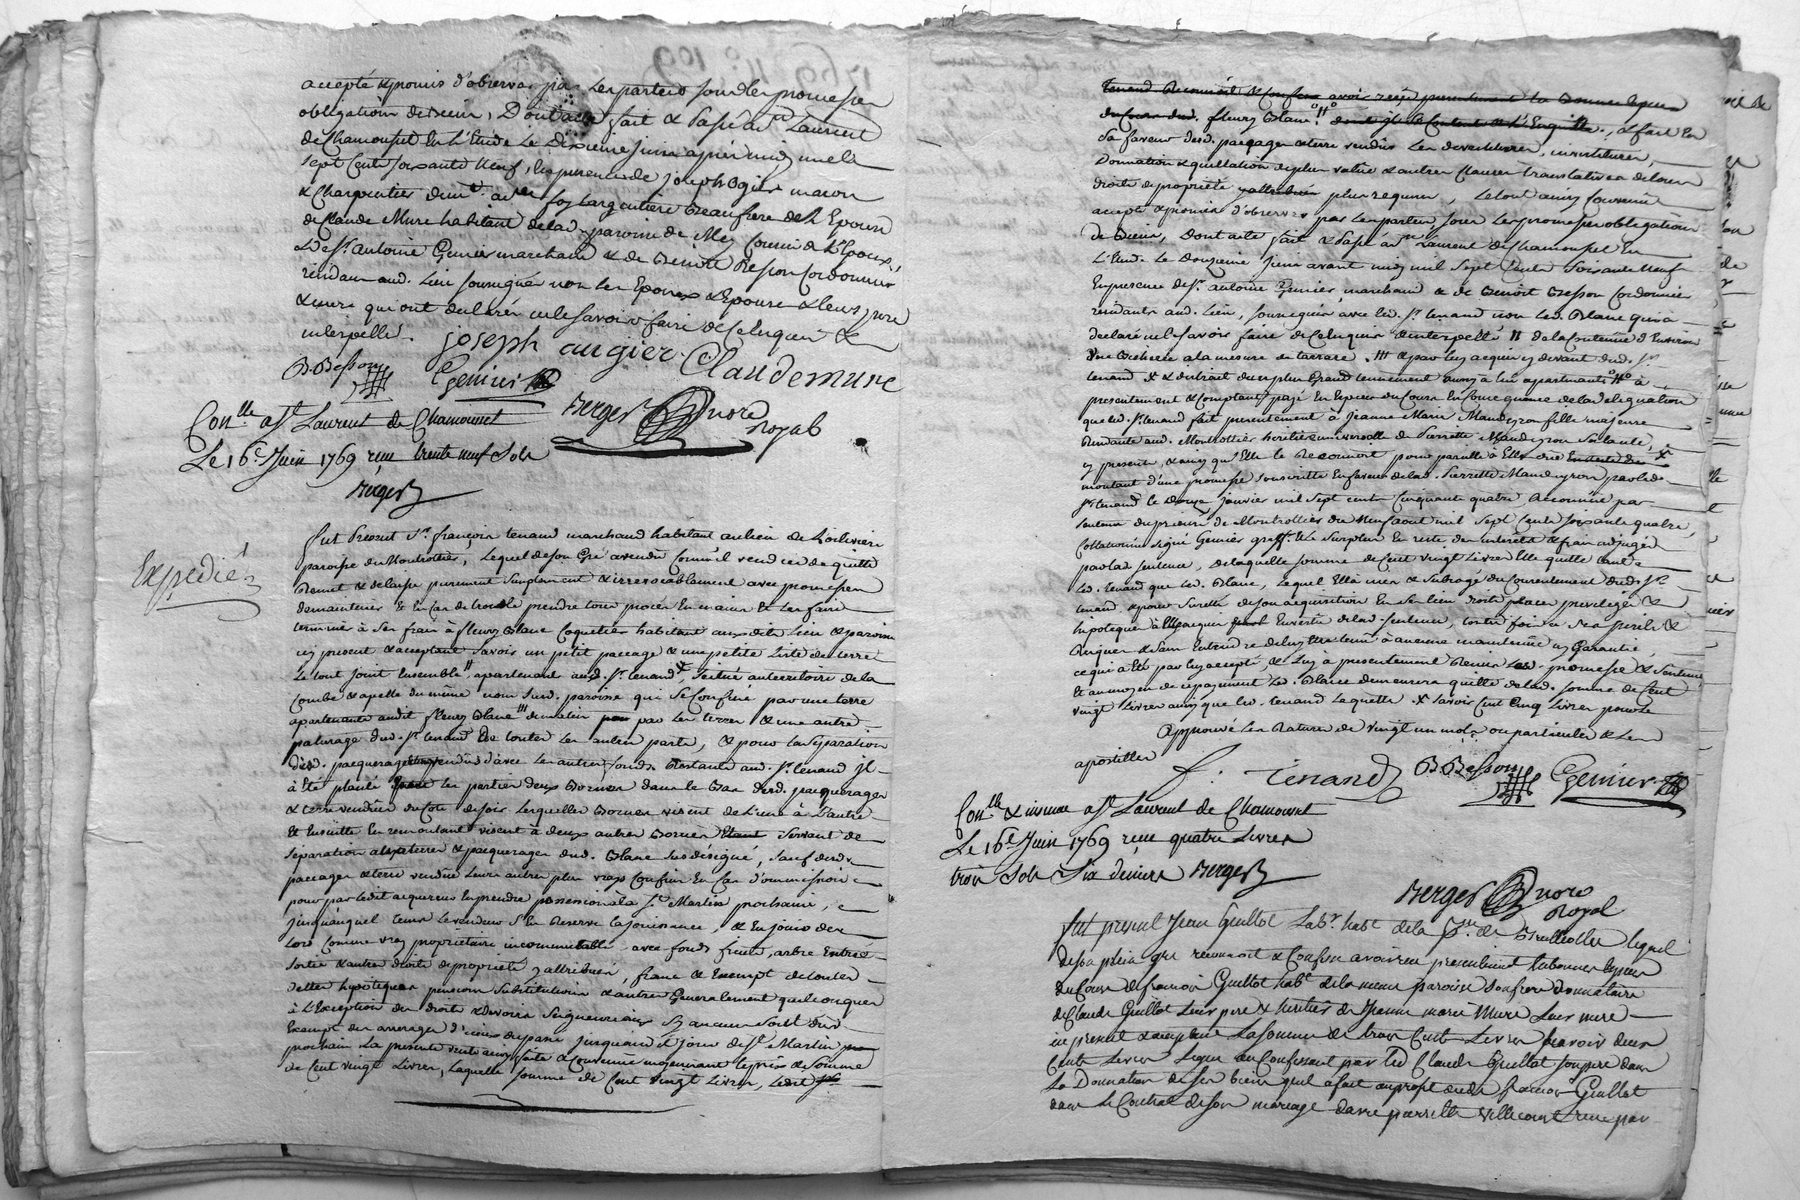 accepté & promis d'observer par les parties sous les promesses
obligations de biens, Dont acte fait & Passé à St Laurent
de Chamousset en L'Etude Le Dixieme Juin après midi mil
sept Cents soixante Neuf, En presence de Joseph Ogier maçon
& Charpentier foy Largentiere Beaufrere de L'Epouse
de Claude Mure habitant de lad. paroisse de Mey Cousin de L'Epoux,
de Sr. Antoine Genier marchand & de Benoit Besson Cordonnier
résidans aud. Lieu soussignés non les Epoux & Epouse & leurs pere
& mere qui ont declarés ne le savoir faire de ce Enquis &
interpellés.
joseph augier Claude mure
B Besson Genier
Berger Nore Royal
Con.lle à St Laurent de Chamousset
Le 16e Juin 1769 reçu trente neuf Sols
Berger
Expedié
fut Present Sr. françois tenand marchand habitant au lieu de
paroisse de Montrottier, Lequel de son Gré a vendu Comme il vend cede quitte
Remet & delaisse purement simplement & irrevocablement avec promesses
de maintenir & En Cas de trouble prendre tous procès En mains & les faire
terminer à ses frais à fleury Blanc Coquetier habitant aux dits Lieu & paroisse
icy present & acceptant savoir un petit paccage & une petite Liste de terre
Le tout joint Ensemble, apartenant aud. Sr. tenand, scitué au territoire de la
Combe & apellé du même nom Susd. paroisse qui se Confine par une terre
apartenante audit fleury Blanc de matin par les terres & une autre
paturage dud. Sr. tenand de toutes les autres parts, & pour la separation
desd. paquerages vendus d'avec les autres fonds Restants aud. Sr. tenand il
à Eté planté par les parties deux Bornes dans le Bas desd. paquerages
& terre vendus du Coté de soir Lesquelles Bornes visent de L'une à L'autre
Et Ensuitte En remontant visent à deux autres Bornes Servant de
Séparation aux terres & paquerages dud. Blanc Susdésigné, sauf desd.
paccages & terre vendue leurs autres plus vrays Confins En Cas d'ommission
pour par ledit acquereur En prendre possession à la St Martin prochaine,
jusqu'auquel tems le vendeur S'En Reserve la Jouissance, & En jouir des
lors Comme vray proprietaire incommutable avec fonds fruits, arbres Entrée
Sortie & autres droits de proprieté y attribués, franc & Exempt de toutes
dettes hypotéques pensions Substitutions & autres Generalement quelconques
à L'Exception des droits & devoirs seigneuriaux sy aucuns sont dus
Exempt des arrerages d'iceux du passé jusqu'au d. jour de St. Martin
prochain La presente vente ainsi faite & Convenue moyennant le prix & Somme
de Cent vingt Livres, Laquelle somme de Cent vingt Livres, Ledit
tenand Reconnoit & Confesse avoir reçu presentement En Bonnes Especes
du Cours dud. fleury Blanc, & fait En
sa faveur desd. paccages & terre vendus les devestitures, investitures,
Donnation & quittation de plus value & autres Clauses translatives de tous
droits de proprieté y attribués plus requises, Le tout ainsy Convenu
accepté & promis d'observer par les parties sous les promesses obligations
de Biens, Dont acte fait & Passé à St Laurent de Chamousset En
L'Etud. Le Douzieme Juin avant midy mil Sept Cents Soixante Neuf
En presence de Sr. antoine Genier marchand & de Benoit Besson Cordonnier
résidants aud. Lieu, soussignés avec led. Sr. tenand non led. Blanc qui a
declaré ne le savoir faire de ce Enquis & interpellé de la Contenue d'Environ
une Bicherée à la mesure de tarrare. & par luy acquis cy devant dud. Sr
tenand & distrait du plus Grand tennement ainsy à lui apartenants à
presentement & Comptant payé En Especes du Cours En Consequence de la delegation
que led. Sr. tenand fait presentement à Jeanne Marie Mandeyron fille majeure
Residante aud. Montrottier héritiere universelle de Pierrette Mandeyron sa tante,
cy presente, & ainsy qu'Elle le Reconnoit pour pareille à Elle due
montant d'une promesse souscritte En faveur de lad. Pierrette Mandeyron par led.
Sr tenand le Douze Janvier mil sept cents Cinquante quatre Reconnue par
Sentence du prieuré de Montrottier du Neuf aout mil Sept Cents soixante quatre,
Collationné signé Genier greff. Le Surplus En reste des interets & frais adjugés
par lad. sentence, de laquelle somme de Cent vingt Livres Elle quitte tant
led. tenand que led. Blanc, Lequel Elle met & Subroge du Consentement dud. Sr
tenand & pour sureté de son acquisition En ses lieu droits places privileges &
hipoteques à Elle acquis En vertu de lad. Sentence, toutes fois à ses perils &
risques & sans Entendre de luy Etre tenue à aucune maintenue ny Garantie,
ce qui a Eté par luy accepté, & luy à presentement Remis les d. promesse & Sentence
Et au moyen de ce payement led. Blanc demeurera quitte de lad. somme de Cent
vingt Livres ainsy que led. tenand laquelle savoir Cent Cinq Livres pour le
Approuvé les Ratures de vingt un mots ou particules & les
apostilles
f. Tenand B Besson Genier
Con.lle & insinué à St Laurent de Chamousset
Le 16e Juin 1769 reçu quatre Livres
trois Sols Six deniers Berger
Berger Nore Royal
fut present Jean Guillot Labr. habt. de la Psse de Brulliolles lequel
de son plein gré reconnoit & Confesse avoir reçu presentement En bonnes Especes
du Cours de françois Guillot habt. de la meme paroisse son frere Donnataire
de Claude Guillot Leur pere & heritier de Jeanne marie Mure Leur mere
icy present & acceptant La somme de trois Cents Livres savoir deux
Cents Livres Legué au Confessant par led Claude Guillot son pere dans
La Donnation de ses biens qu'il a fait au profit dud. françois Guillot
dans le Contrat de son mariage avec pierrette villecourt reçu par